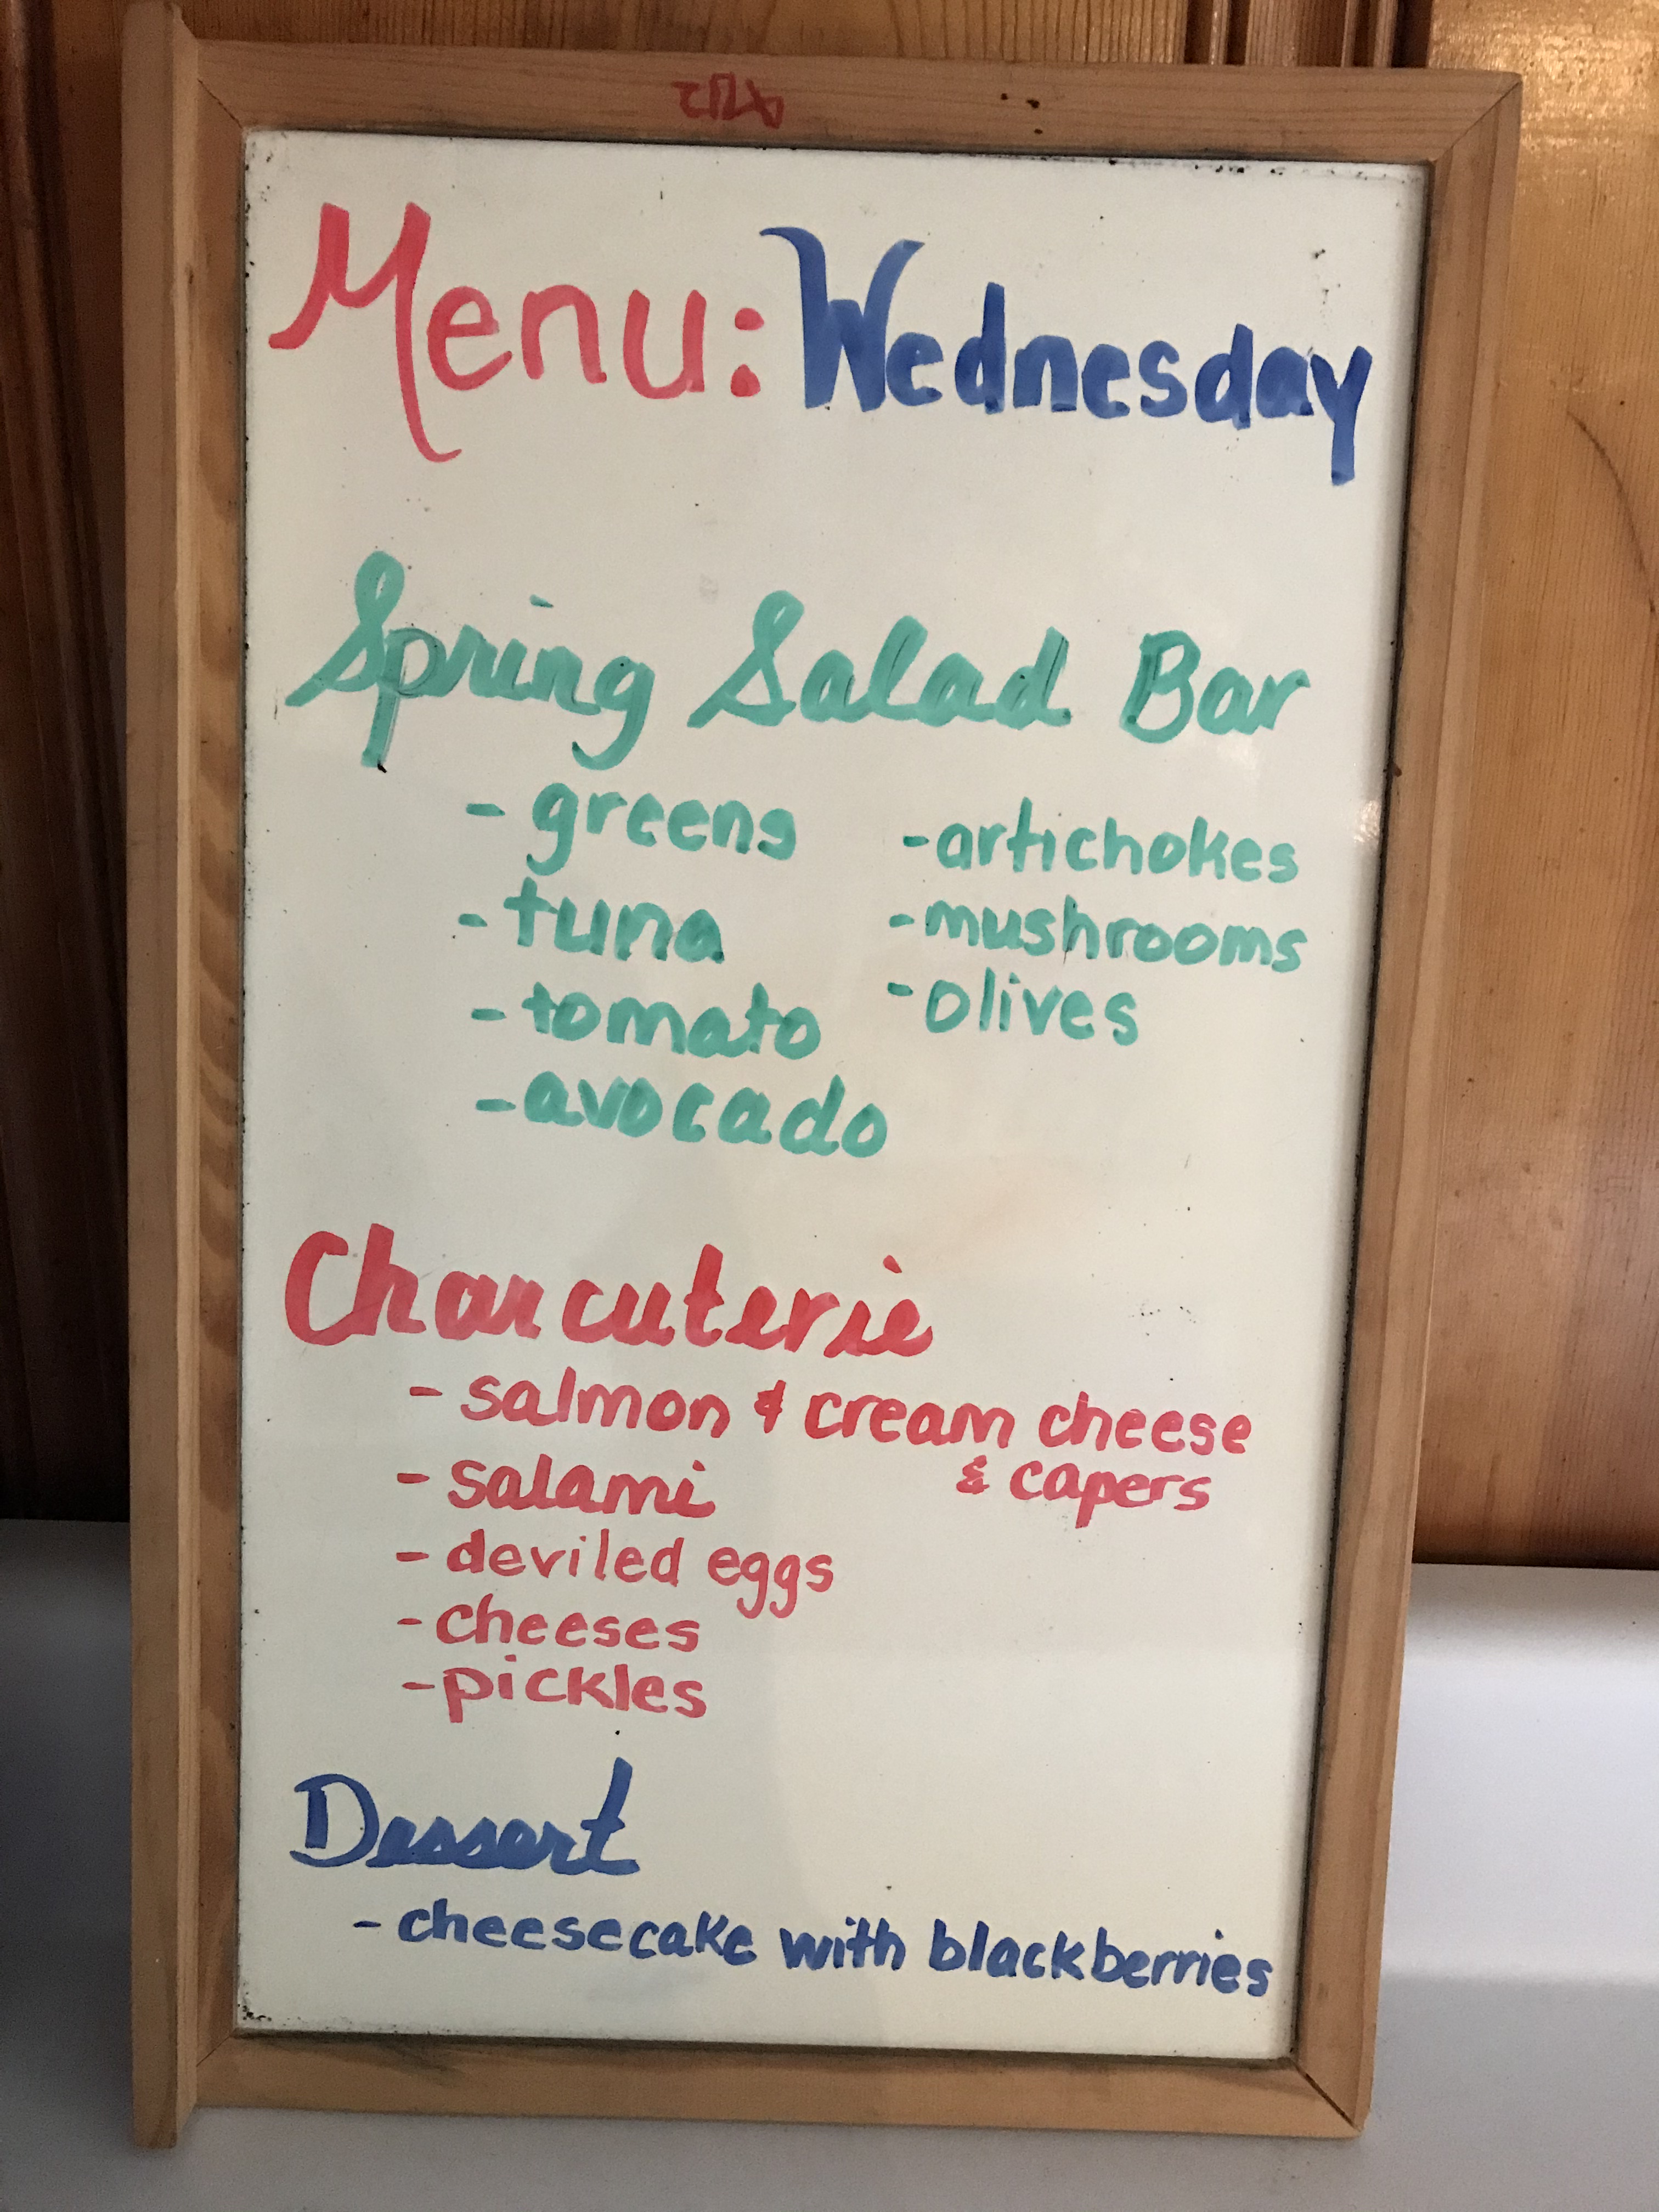 Menu: Wednesday
Spring Salad Bar
- greens
- tuna
- tomato
- avocado
- artichokes
- mushrooms
- olives
Charcuterie
- salmon & cream cheese
& capers
- salami
- deviled eggs
- cheeses
- pickles
Dessert
- cheesecake with blackberries